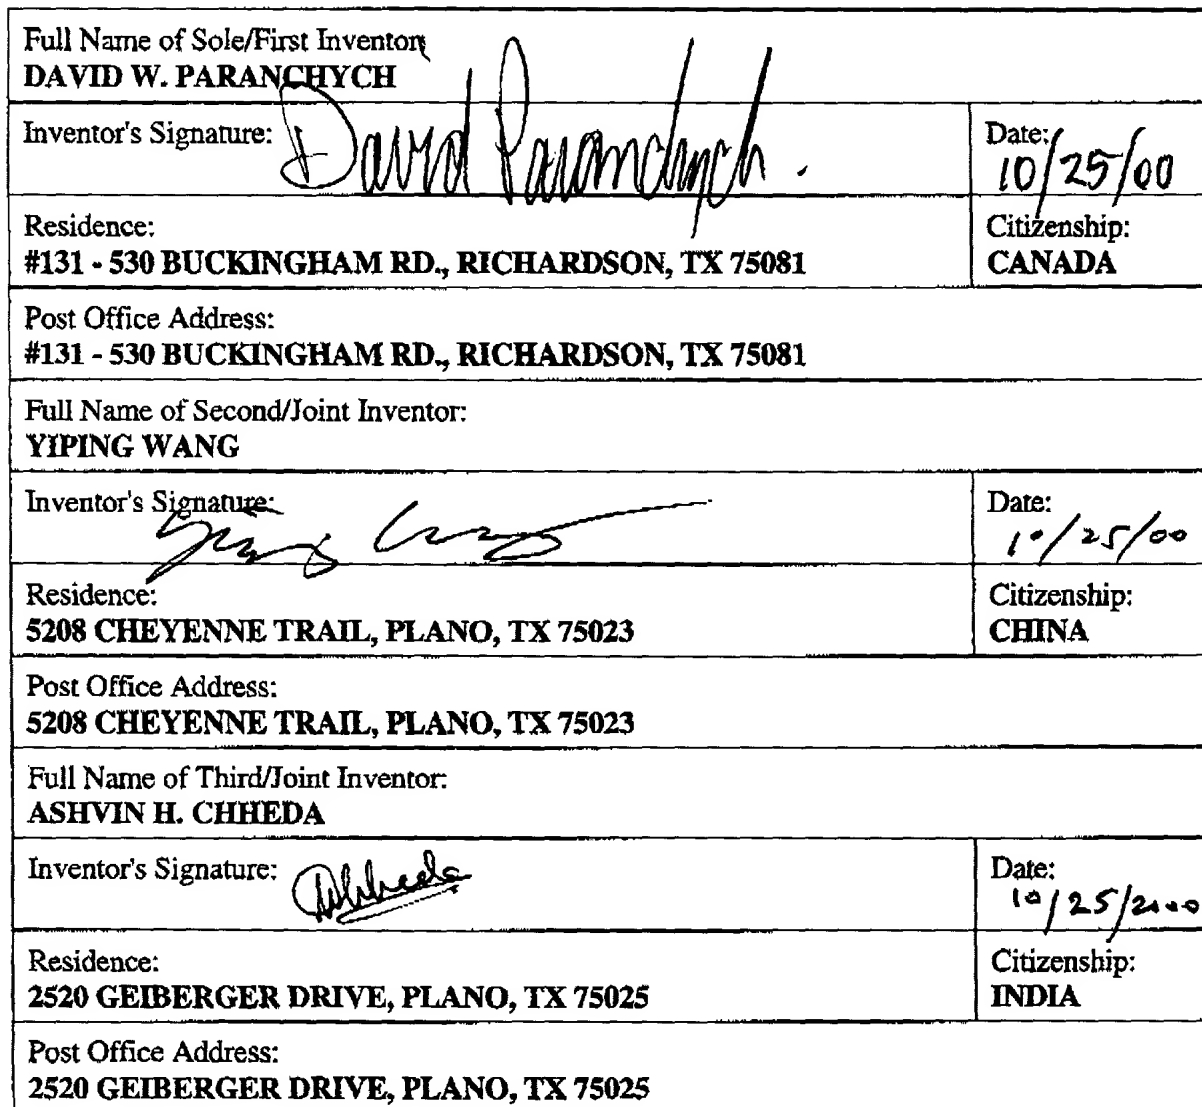 Full Name of Sole/First Inventor
DAVID W. PARANCHYCH
Inventor's Signature: David Paranchych.
Date: 10/25/00
Residence:
#131 - 530 BUCKINGHAM RD., RICHARDSON, TX 75081
Citizenship:
CANADA
Post Office Address:
#131 - 530 BUCKINGHAM RD., RICHARDSON, TX 75081
Full Name of Second/Joint Inventor:
YIPING WANG
Inventor's Signature: Yiping Wang
Date: 10/25/00
Residence:
5208 CHEYENNE TRAIL, PLANO, TX 75023
Citizenship:
CHINA
Post Office Address:
5208 CHEYENNE TRAIL, PLANO, TX 75023
Full Name of Third/Joint Inventor:
ASHVIN H. CHHEDA
Inventor's Signature: AChheda
Date: 10/25/2000
Residence:
2520 GEIBERGER DRIVE, PLANO, TX 75025
Citizenship:
INDIA
Post Office Address:
2520 GEIBERGER DRIVE, PLANO, TX 75025